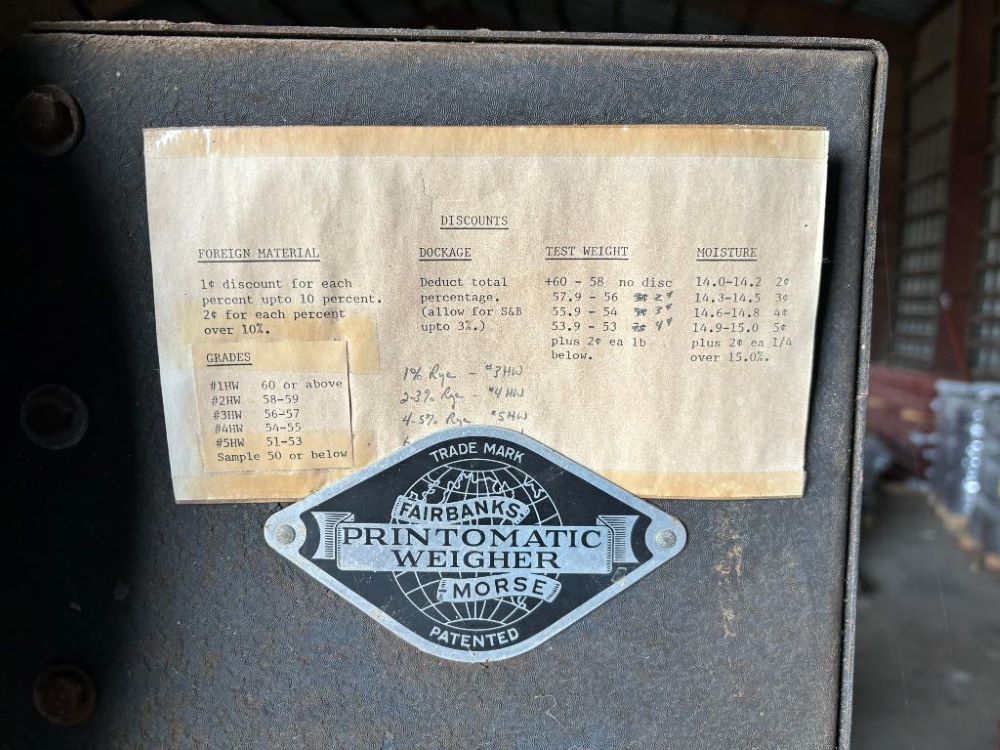 DISCOUNTS
FOREIGN MATERIAL
1¢ discount for each
percent upto 10 percent.
2¢ for each percent
over 10%.
GRADES
#1HW 60 or above
#2HW 58-59
#3HW 56-57
#4HW 54-55
#5HW 51-53
Sample 50 or below
DOCKAGE
Deduct total
percentage.
(allow for S&B
upto 3%.)
1% Rye - #3HW
2-3% Rye - #4HW
4-5% Rye #5HW
TEST WEIGHT
+60 - 58 no disc
57.9 - 56 2¢
55.9 - 54 3¢
53.9 - 53 4¢
plus 2¢ ea lb
below.
MOISTURE
14.0-14.2 2¢
14.3-14.5 3¢
14.6-14.8 4¢
14.9-15.0 5¢
plus 2¢ ea 1/4
over 15.0%.
TRADE MARK
FAIRBANKS-
PRINTOMATIC
WEIGHER
MORSE
PATENTED